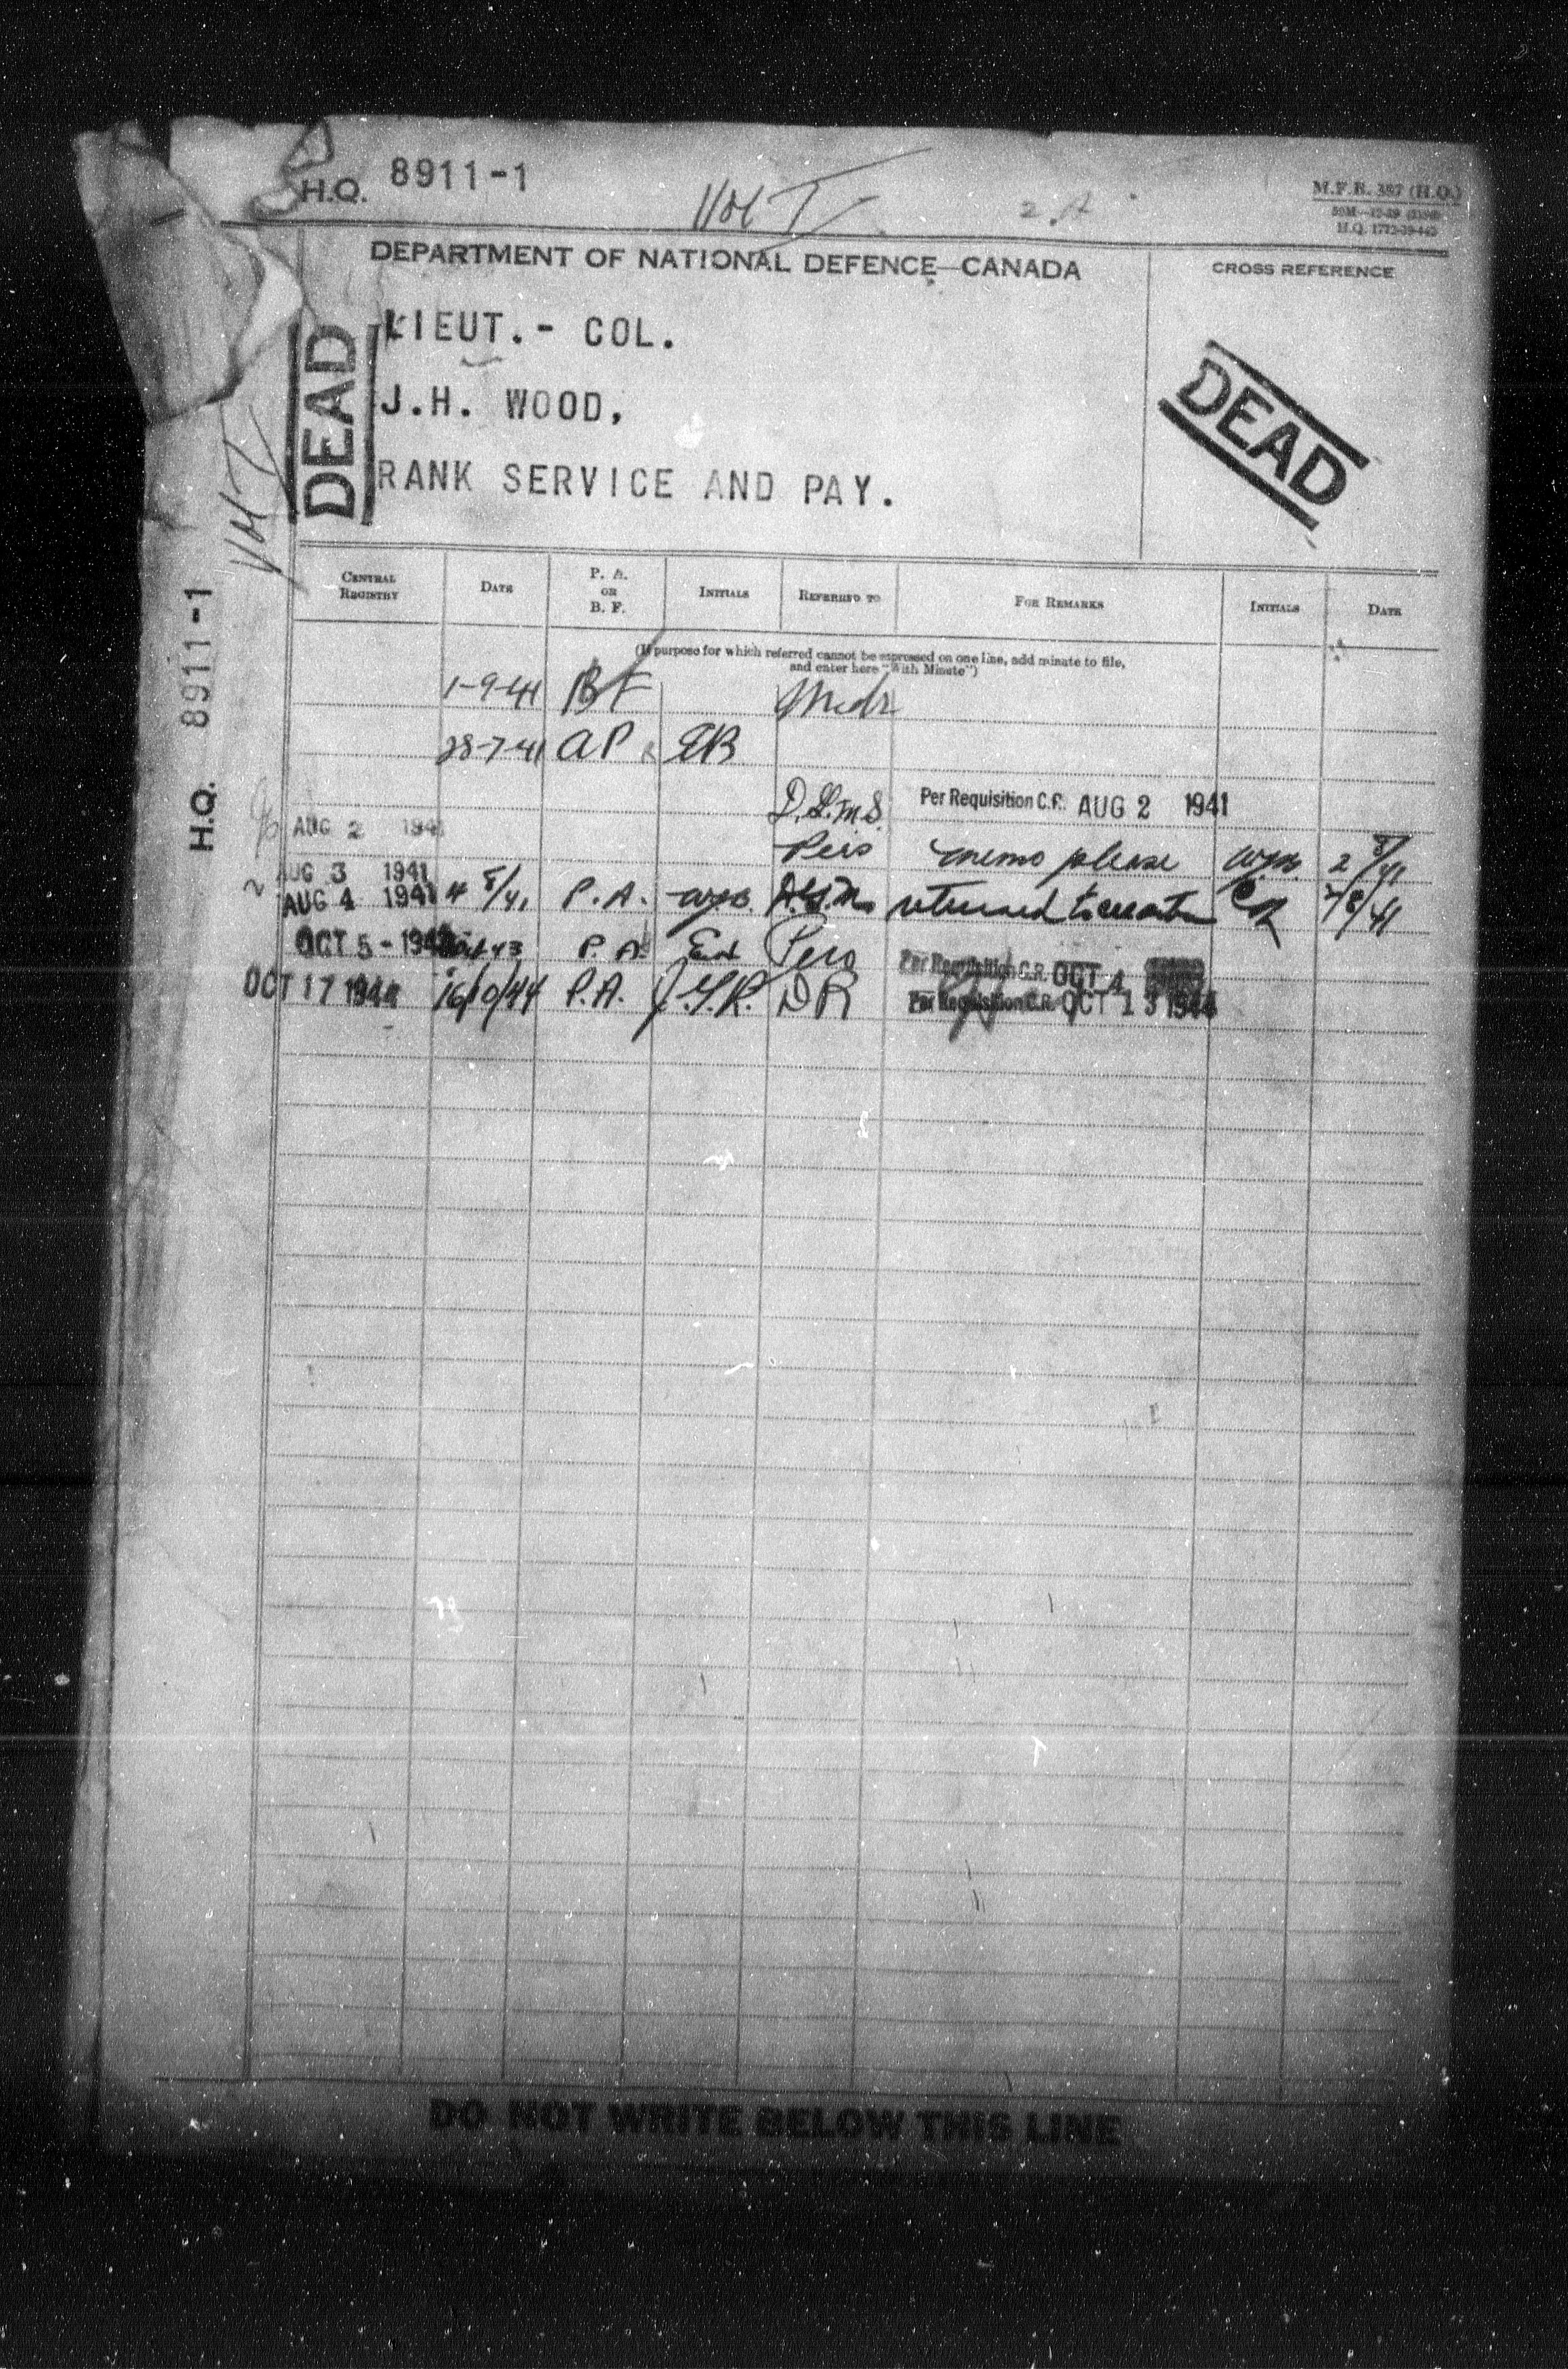 H.Q. 8911-1
Vol I
M.F.B. 387 (H.Q.)
H.Q. 1772-39-442
DEPARTMENT OF NATIONAL DEFENCE—CANADA
CROSS REFERENCE
LIEUT.- COL.
J.H. WOOD,
RANK SERVICE AND PAY.
DEAD
DEAD
Vol I
H.Q. 8911-1
CENTRAL REGISTRY DATE P. A. OR B. F. INITIALS REFERRED TO FOR REMARKS INITIALS DATE
(If purpose for which referred cannot be expressed on one line, add minute to file,
and enter here "With Minute")
1-9-41 BF
28-7-41 AP
Per Requisition C.R. AUG 2 1941
AUG 2 1941
Pers memo please 2/8/41
AUG 3 1941
AUG 4 1941 4 8/41 P.A. returned
OCT 5 - P.A. Pers Per Requisition C.R. OCT 4
OCT 17 1944 16/10/44 P.A. DR Per Requisition C.R. OCT 13 1944
DO NOT WRITE BELOW THIS LINE